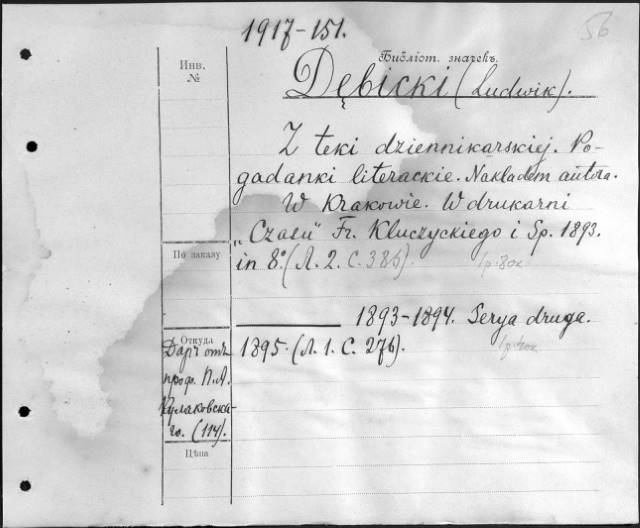 1917-151.
56
Инв. №
Библіот. значекъ.
Dębicki (Ludwik).
Z teki dziennikarskiej. Po-
gadanki literackie. Nakładem autora.
W Krakowie. W drukarni
„Czasu” Fr. Kluczyckiego i Sp. 1893.
По заказу
in 8º. (Л. 2. С. 386).
1893-1894. Serya druga.
Откуда
1895. (Л. 1. С. 276).
Даръ отъ
проф. П.А.
Кулаковска-
го. (114).
Цѣна